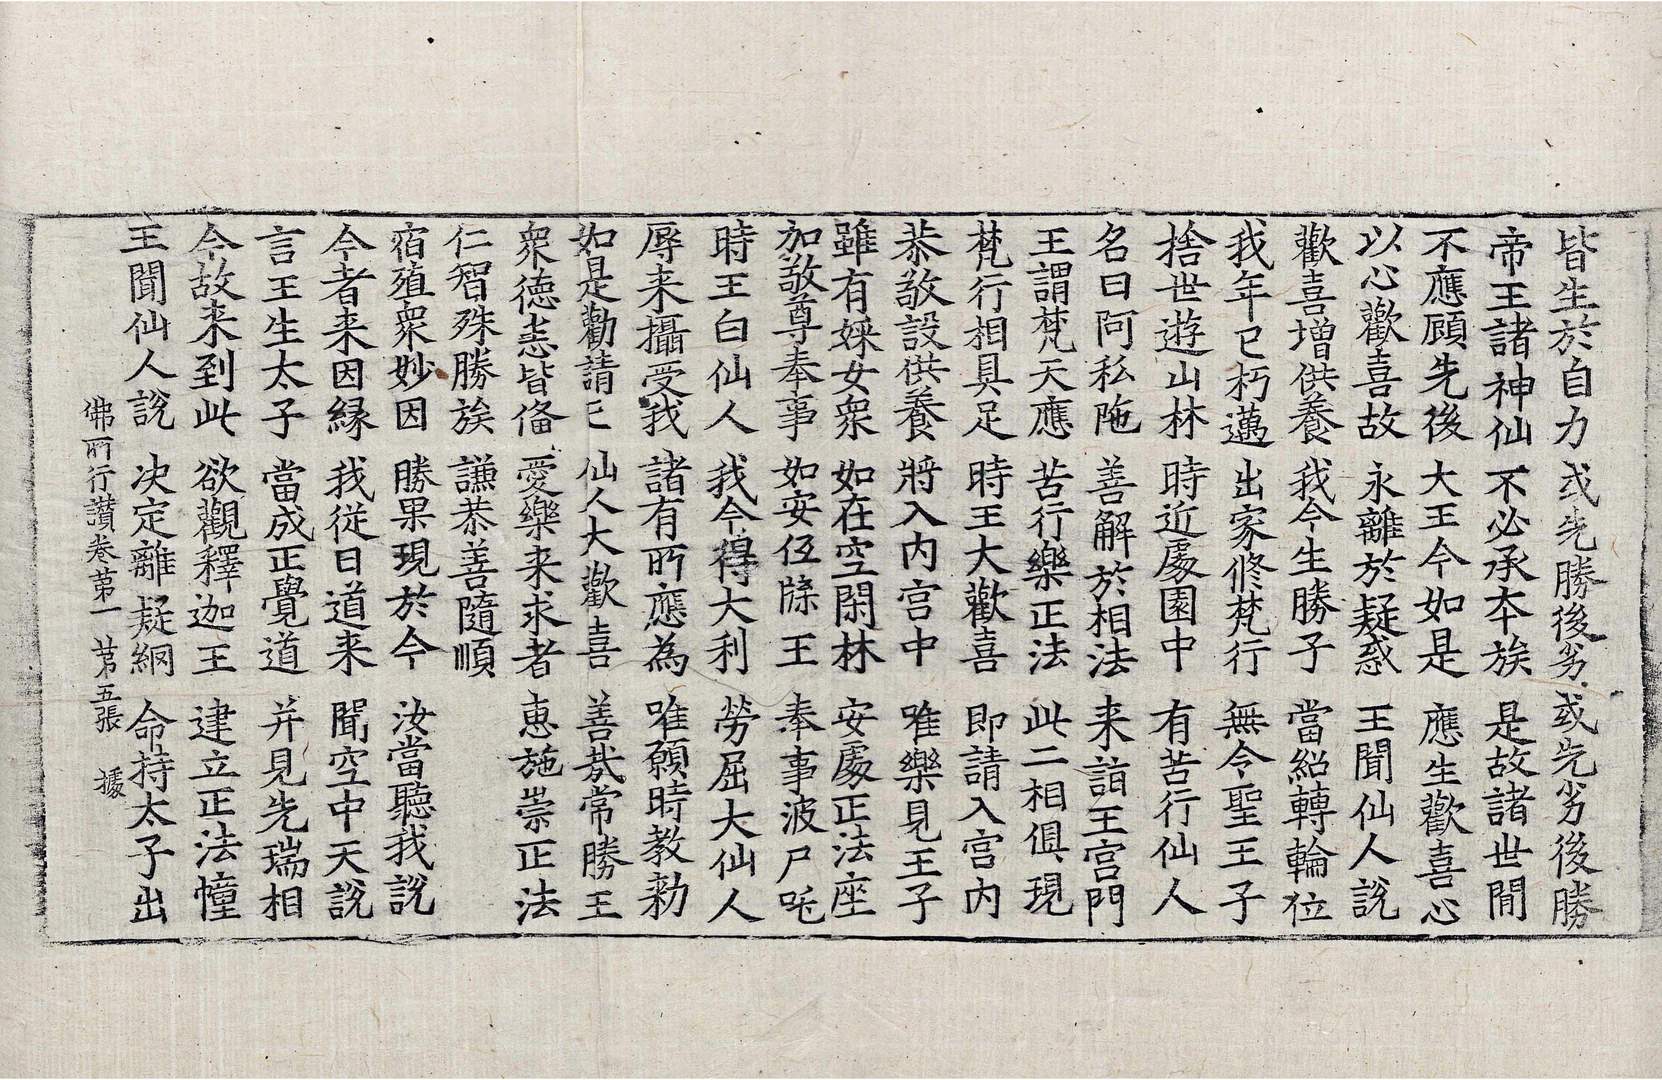 皆生於自力 或先勝後劣 或先劣後勝
帝王諸神仙 不必承本族 是故諸世間
不應顧先後 大王今如是 應生歡喜心
以心歡喜故 永離於疑惑 王聞仙人說
歡喜增供養 我今生勝子 當紹轉輪位
我年已朽邁 出家修梵行 無令聖王子
捨世遊山林 時近處園中 有苦行仙人
名曰阿私陁 善解於相法 来詣王宮門
王謂梵天應 苦行樂正法 此二相俱現
梵行相具足 時王大歡喜 即請入宮內
恭敬設供養 將入內宮中 唯樂見王子
雖有婇女衆 如在空閑林 安處正法座
加敬尊奉事 如安伍牒王 奉事波尸吒
時王白仙人 我今得大利 勞屈大仙人
辱来攝受我 諸有所應為 唯願時教勑
如是勸請已 仙人大歡喜 善哉常勝王
衆德悉皆備 愛樂来求者 惠施崇正法
仁智殊勝族 謙恭善隨順
宿殖衆妙因 勝果現於今 汝當聽我說
今者来因緣 我從日道来 聞空中天說
言王生太子 當成正覺道 并見先瑞相
今故来到此 欲觀釋迦王 建立正法幢
王聞仙人說 决定離疑網 命持太子出
佛所行讚卷苐一 苐五張 據